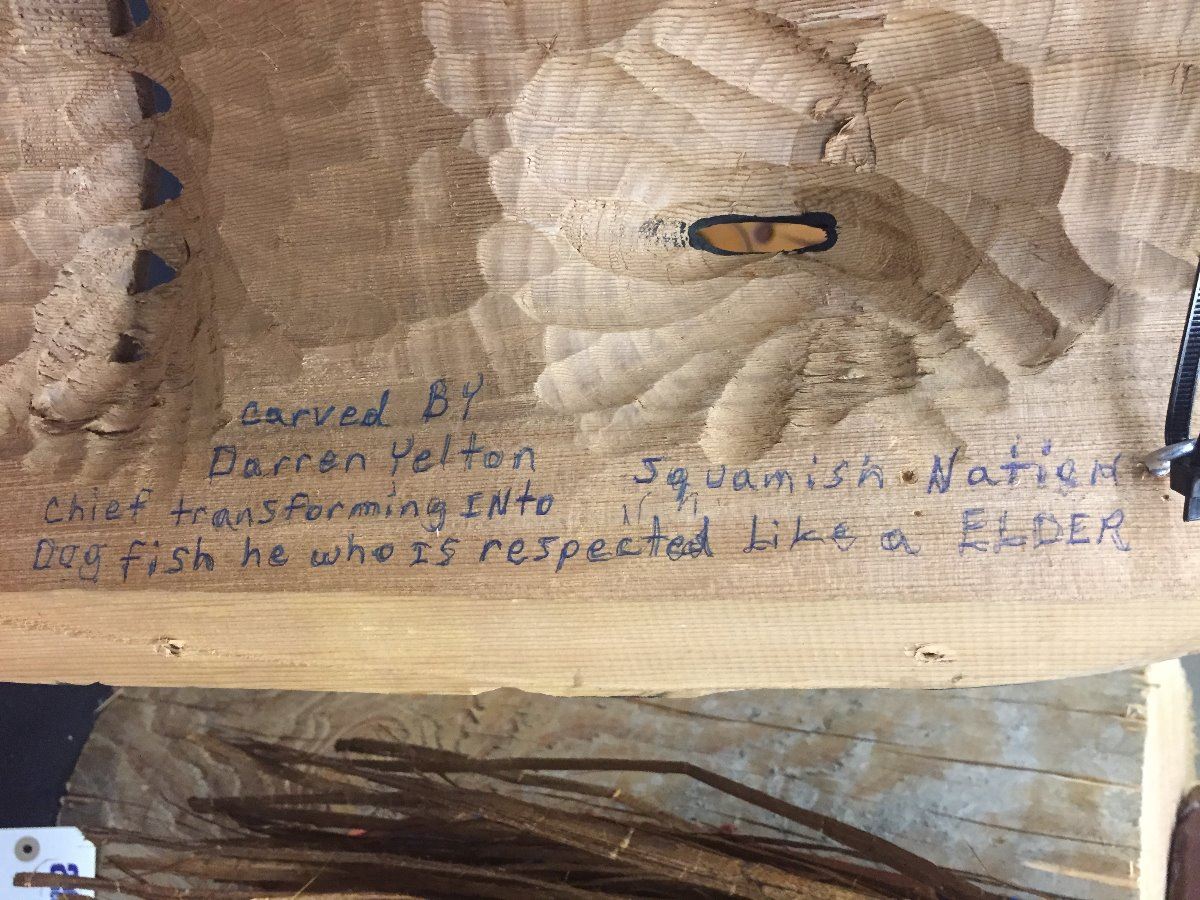 carved BY
Darren Yelton
Squamish Nation
Chief transforming INto
Dog fish he who IS respected Like a ELDER